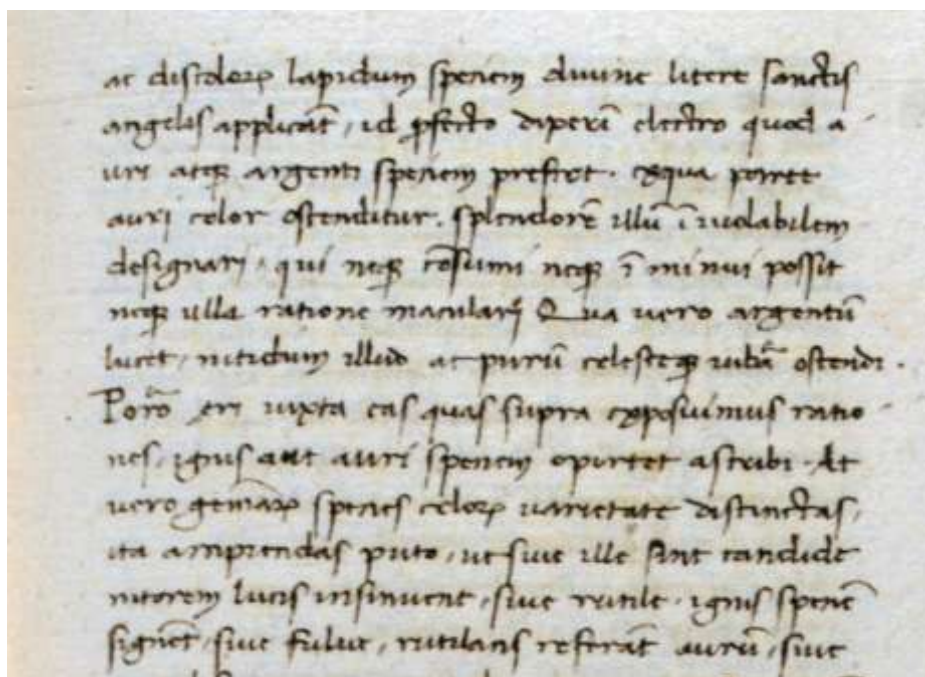 ac discoloꝝ lapidum speciem diuine litere sanctis
angelis applicāt, id ꝓfecto aperiī electro quod a
uri atqꝫ argenti speciem prefert. exqua parte
auri color ostenditur. splendorē illū īuiolabilem
designari, qui neqꝫ cōsumi neqꝫ īminui possit
neqꝫ ulla ratione maculari Qua uero argentū
lucet, nitidum illud ac purū celesteqꝫ iubar̄ ostendi.
Porro eri iuxta eas quas supra exposuimus ratio
nes, ignis aut auri speciem oportet ascribi. At
uero gemmaꝝ species coloꝝ uarietate distinctas,
ita accipiendas puto, ut siue ille sint candide
nitorem lucis insinuent, siue rutile, ignis speciē
signēt, siue fulue, rutilatis referāt aurū, siue